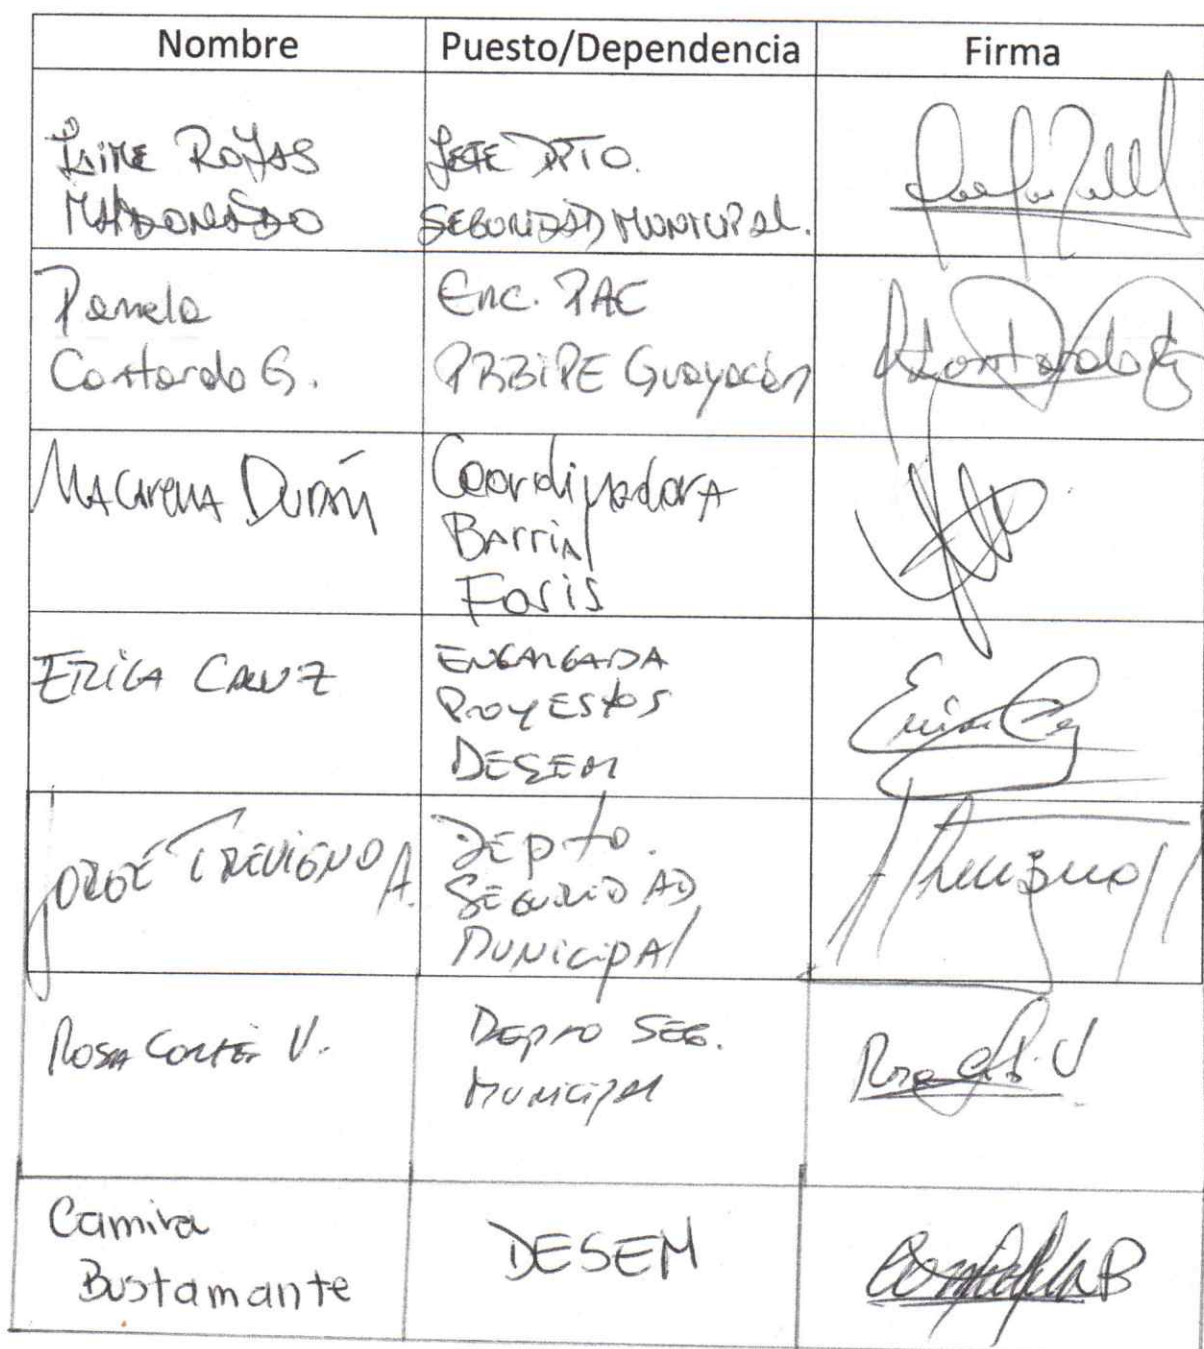 Nombre Puesto/Dependencia Firma
Jaime Rojas Jefe Dpto.
Maldonado Seguridad Municipal.
Pamela Enc. PAE
Contardo G. PRBiPE Guayacán
Macarena Durán Coordinadora
Barrial
Foris
Erica Cruz Encargada
Proyectos
DESEM
Jorge Trevigno A. Depto.
Seguridad
Municipal
Rosa Cortés V. Depto Seg.
Municipal
Camila DESEM
Bustamante